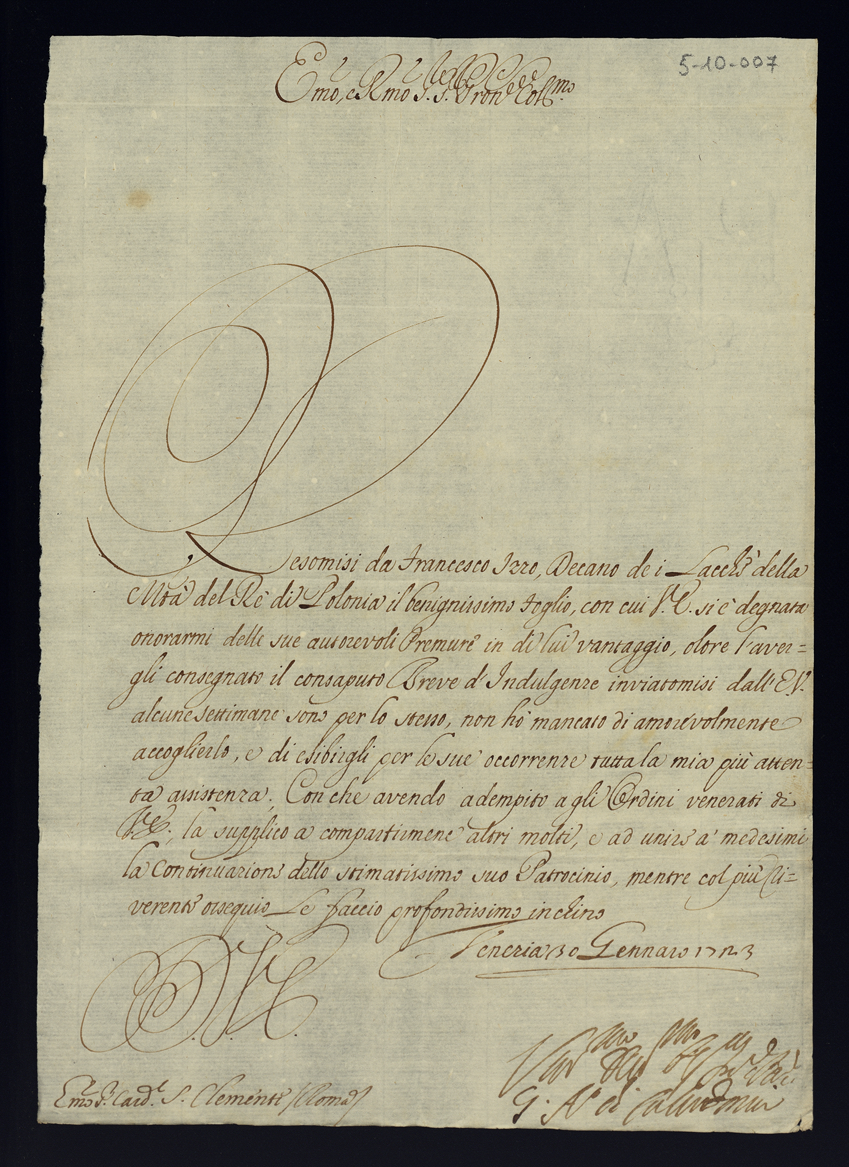 5-10-007
Emo, e Rmo S. S. Pron. Col.mo
Resomisi da Francesco Izzo, Decano de i Lacchè della
Mtà del Rè di Polonia il benignissimo foglio, con cui V. E. si è degnata
onorarmi delle sue autorevoli Premure in di lui vantaggio, oltre l'aver=
gli consegnato il consaputo Breve d'Indulgenze inviatomisi dall' E. V.
alcune settimane sono per lo stesso, non hò mancato di amorevolmente
accoglierlo, e di esibirgli per le sue occorrenze tutta la mia più atten=
ta assistenza; Con che avendo adempito a gli Ordini venerati di
V. E., la supplico a compartirmene altri molti, e ad unire a' medesimi
la Continuazione dello stimatissimo suo Patrocinio, mentre col più ri=
verente ossequio Le faccio profondissimo inchino
Venezia 30 Gennaro 1723
D. V. E.
Emo Sr. Card.l S. Clemente /Roma/